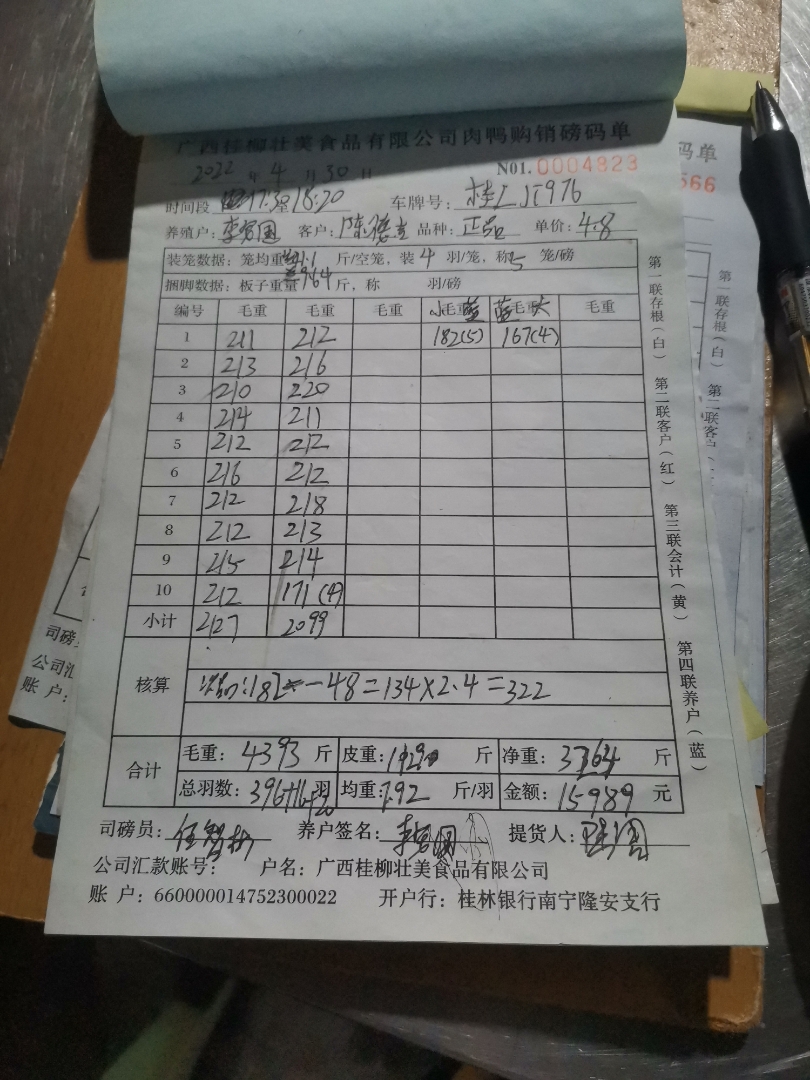 广西桂柳壮美食品有限公司肉鸭购销磅码单
2022 年 4 月 30 日 N01. 0004823
时间段 17:30至18:20 车牌号: 桂L JT976
养殖户: 李 国 客户: 陈德 品种: 正品 单价: 4.8
装笼数据: 笼均重 斤/空笼, 装 4 羽/笼, 称 5 笼/磅
捆脚数据: 板子重量 964 斤, 称 羽/磅
编号 毛重 毛重 毛重 小毛重 蓝 蓝 毛重 大 毛重
1 211 212 182(5) 167(4)
2 213 216
3 210 220
4 214 211
5 212 212
6 216 212
7 212 218
8 212 213
9 215 214
10 212 171(4)
小计 2127 2099
核算
:182-48=134×2.4=322
合计 毛重: 4393 斤 皮重: 斤 净重: 3764 斤
总羽数: 396+16+20 羽 均重: 7.92 斤/羽 金额: 15989 元
司磅员: 任 养户签名: 李 国 提货人:
公司汇款账号: 户名: 广西桂柳壮美食品有限公司
账 户: 660000014752300022 开户行: 桂林银行南宁隆安支行
第一联存根(白) 第二联客户(红) 第三联会计(黄) 第四联养户(蓝)
码单
566
第一联存根(白) 第二联客户(
司磅员
公司汇
账 户: